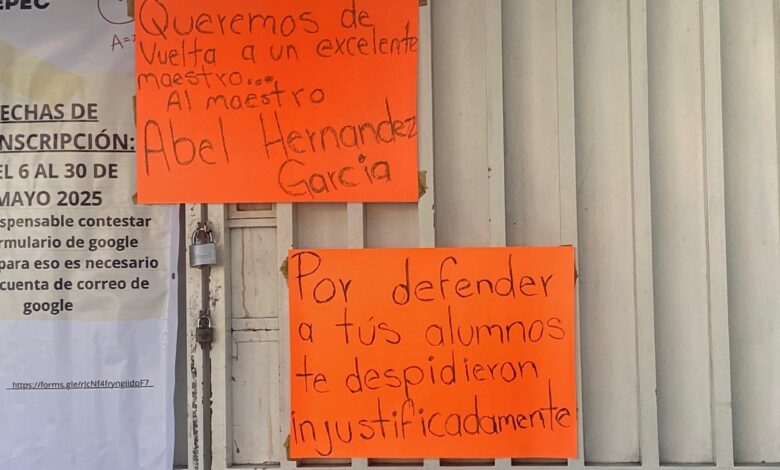 Queremos de
Vuelta a un excelente
maestro...
Al maestro
Abel Hernandez
Garcia
Por defender
a tús alumnos
te despidieron
injustificadamente
PEC
A=
ECHAS DE
NSCRIPCIÓN:
EL 6 AL 30 DE
MAYO 2025
spensable contestar
rmulario de google
para eso es necesario
cuenta de correo de
google